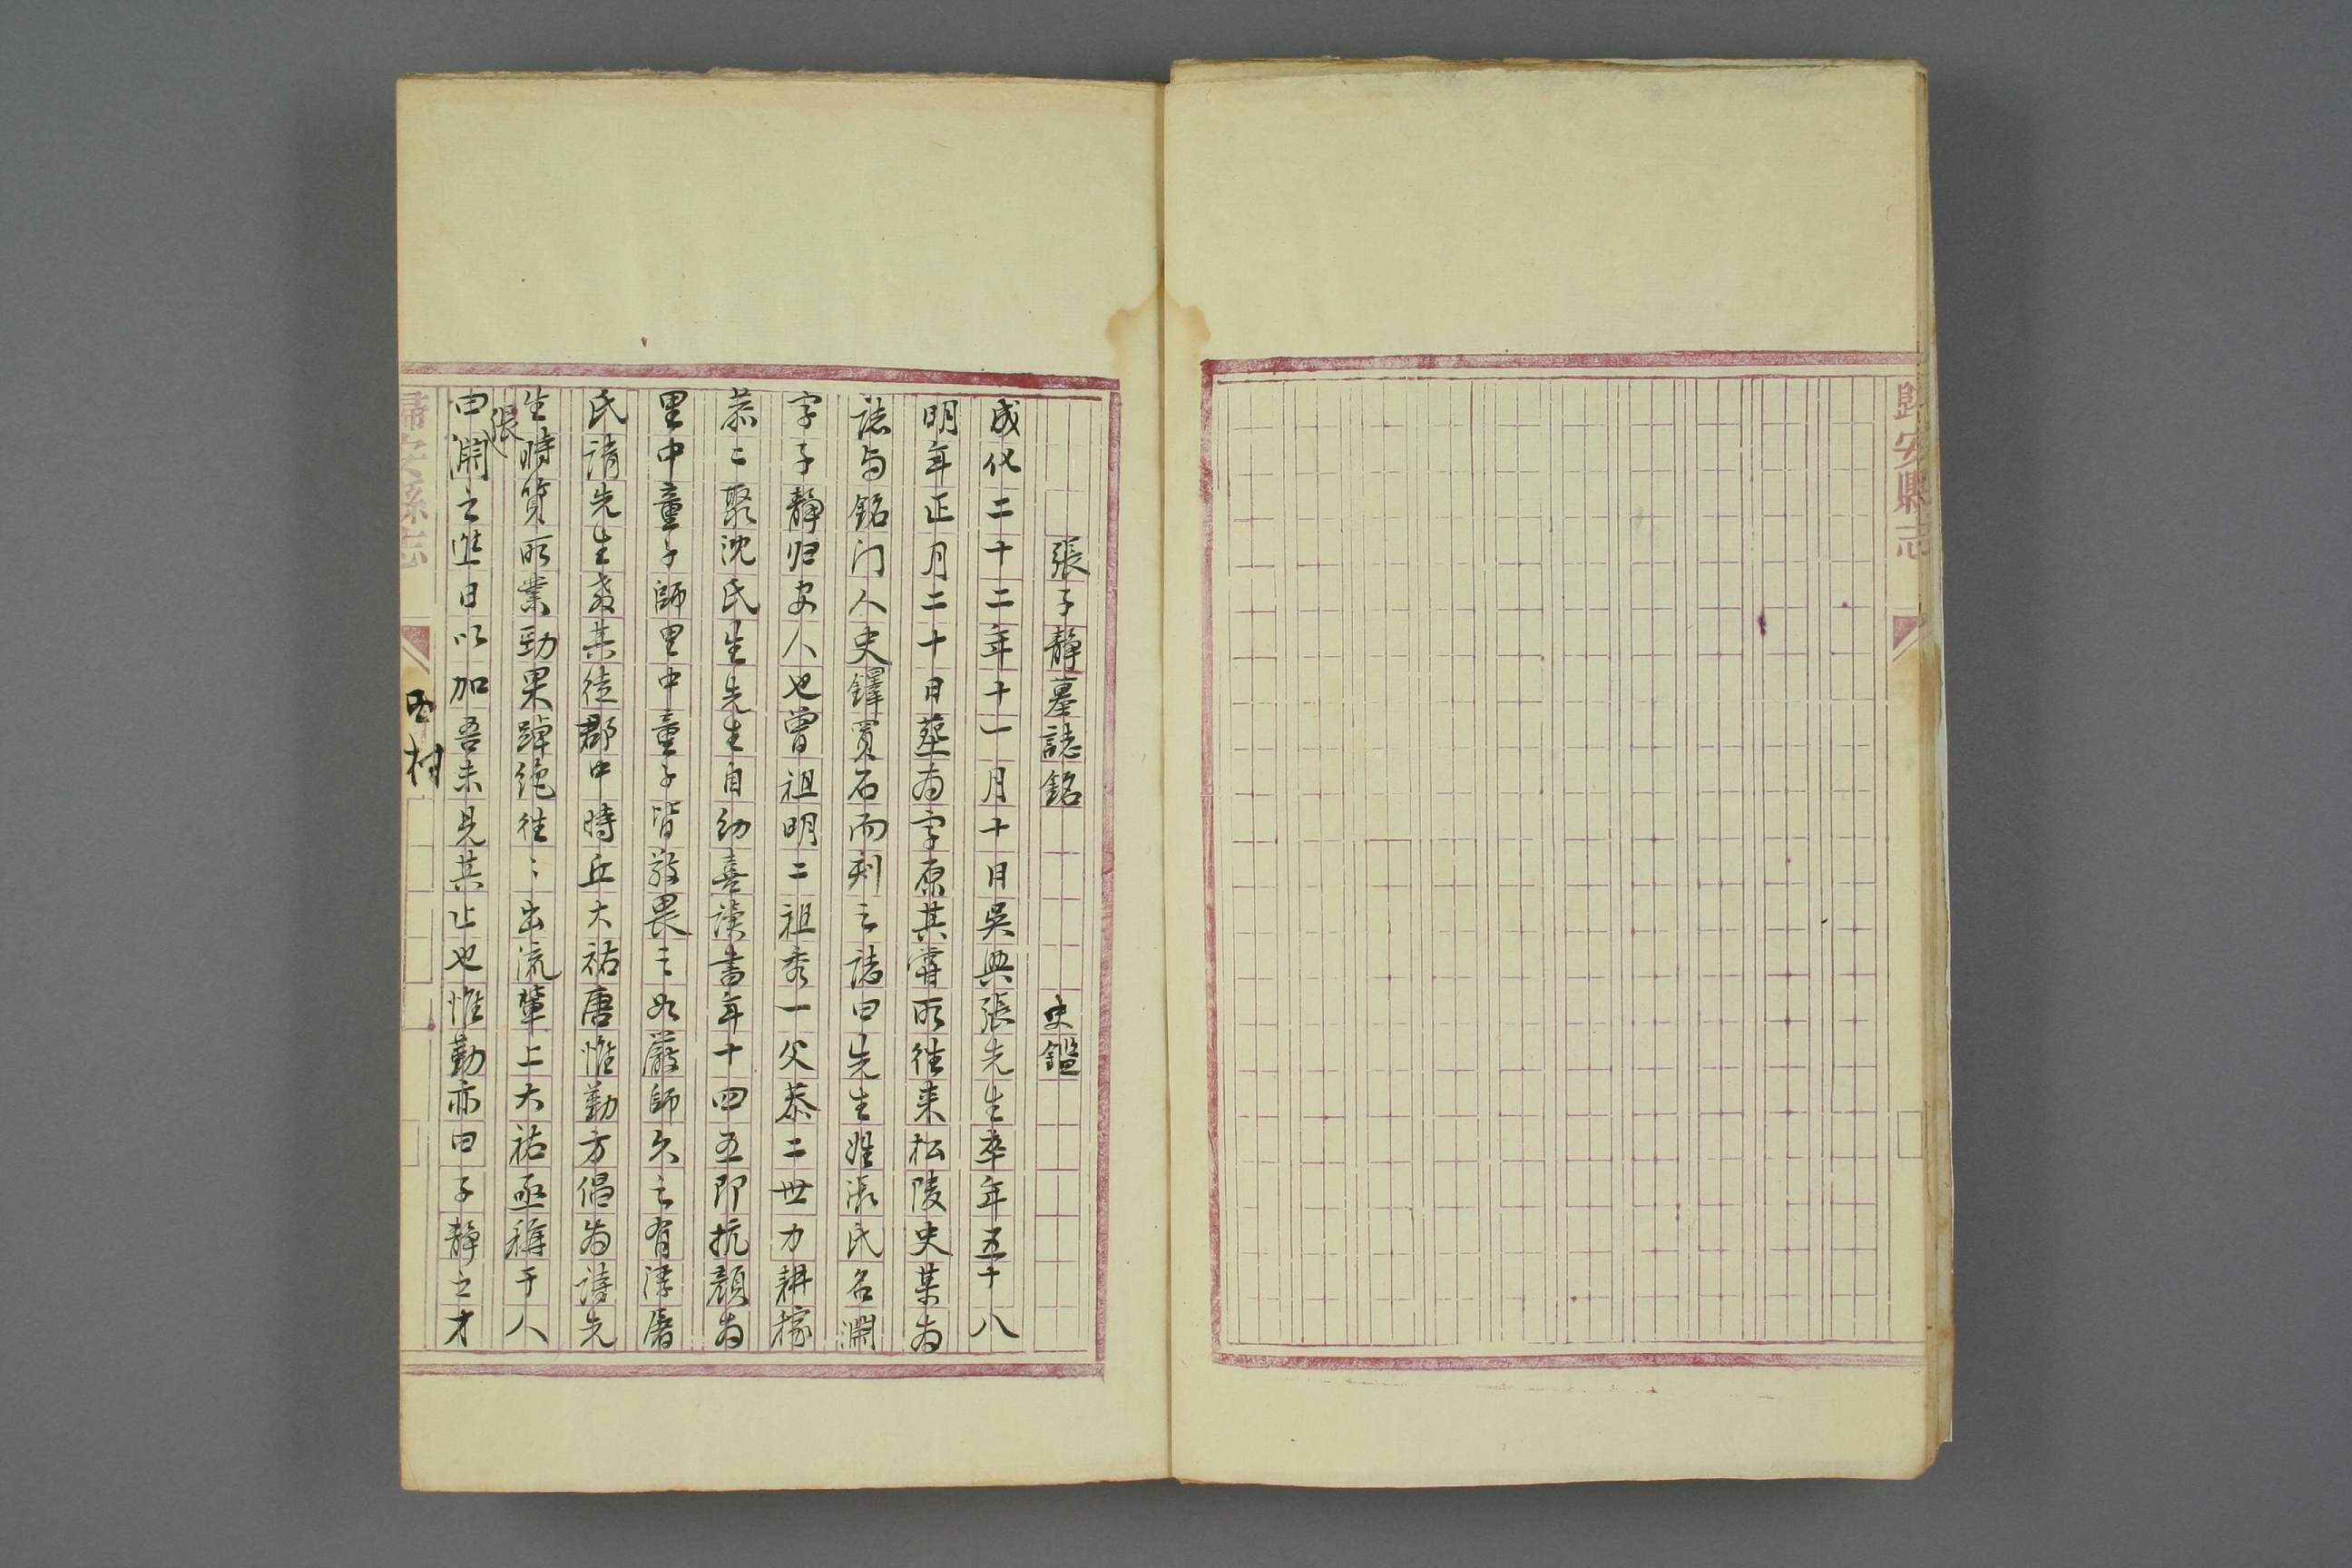 歸安縣志
張子靜墓誌銘 史鑑
成化二十二年十一月十日吳興張先生卒年五十八
明年正月二十日葬为字原其霄所往来松陵史某为
誌与銘门人史鐸買石而刻之誌曰先生姓張氏名淵
字子靜归安人也曾祖明二祖秀一父恭二世力耕稼
恭二聚沈氏生先生自幼喜讀書年十四五即抗顏为
里中童子師里中童子皆敬畏之如嚴師久之有漳屠
氏請先生教其徒郡中時丘大祐唐惟勤方倡为詩先
生時質所業勁果踔绝往〻出流輩上大祐亟稱于人
曰張淵之進日以加吾未見其止也惟勤亦曰子靜之才
歸安縣志
西村